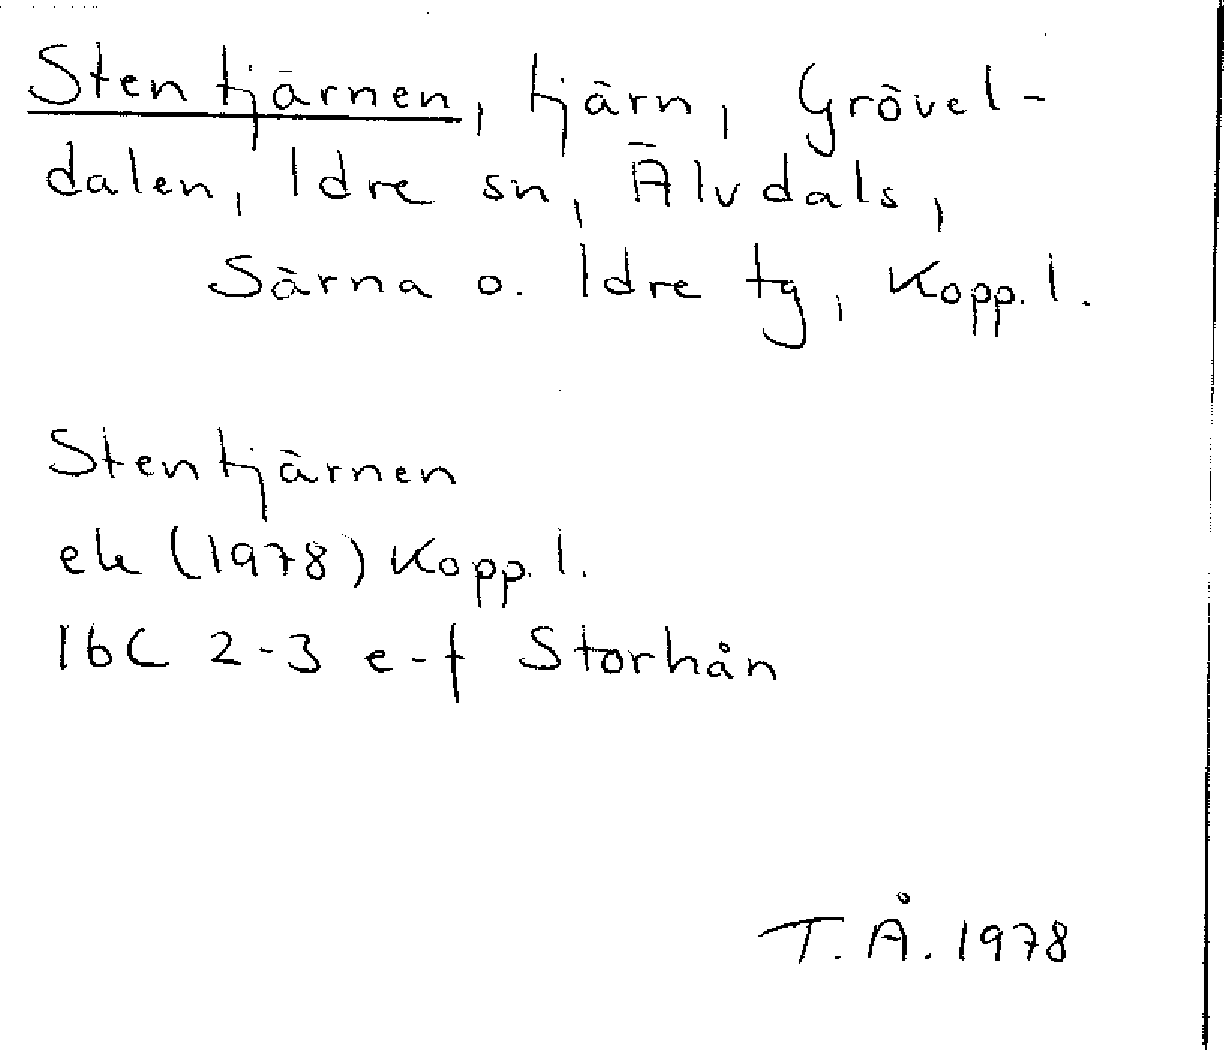 Stentjärnen, tjärn, Grövel-
dalen, Idre sn, Älvdals,
Särna o. Idre tg, Kopp. l.
Stentjärnen
ek (1978) Kopp. l.
16C 2-3 e-f Storhån
T. Å. 1978